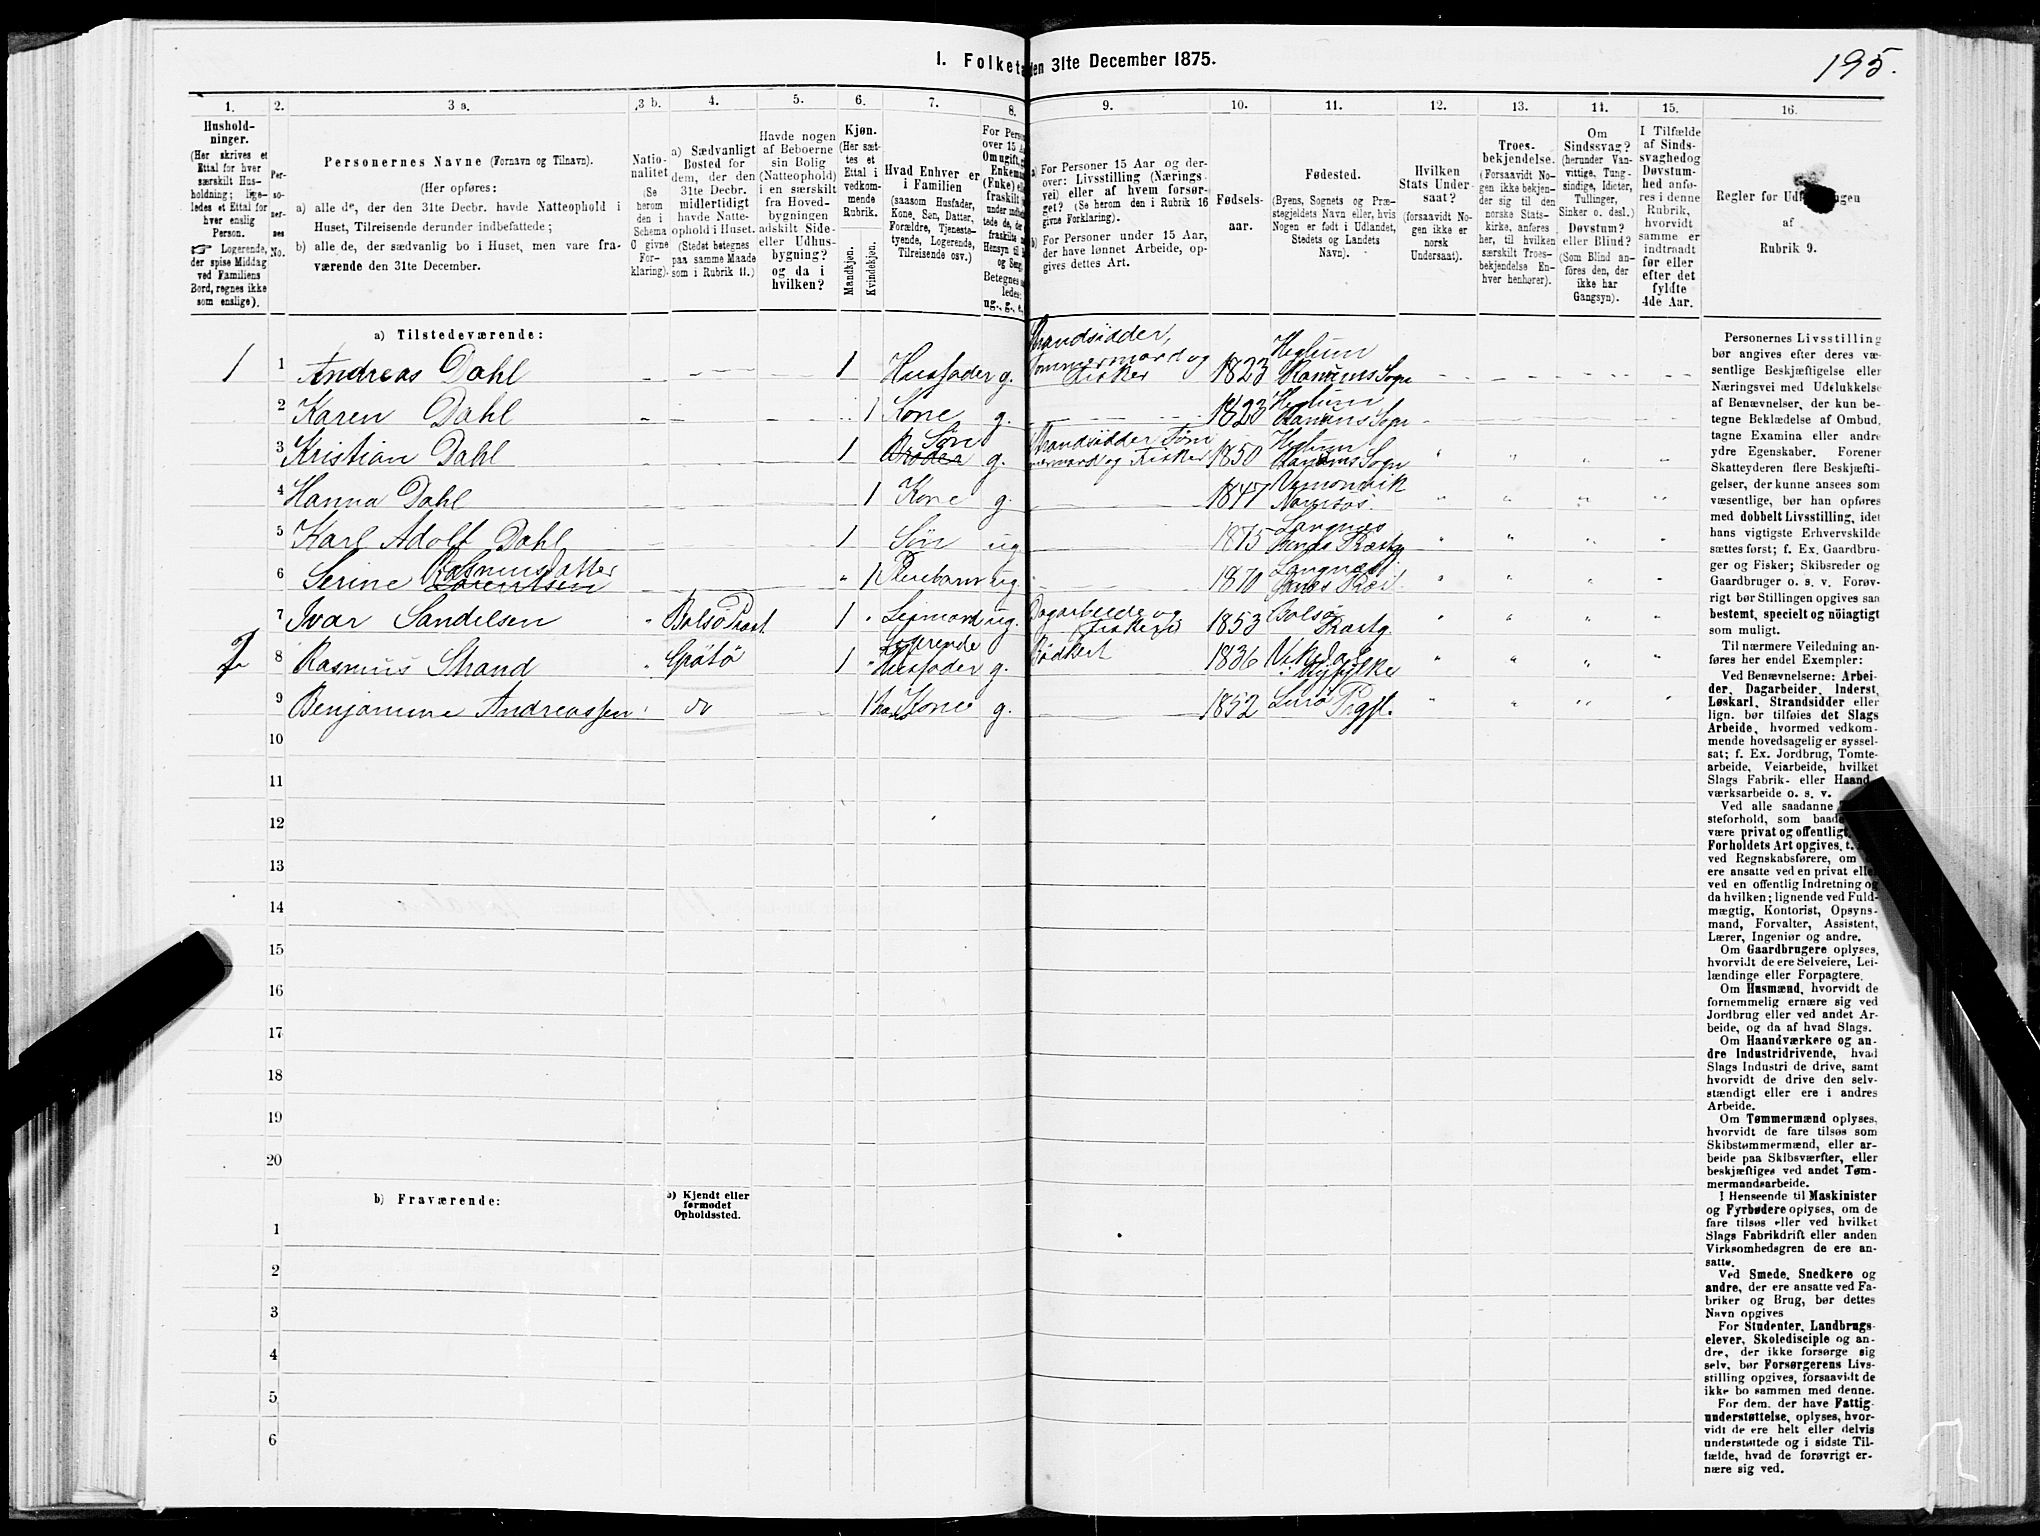 I. Folketæ
den 31te December 1875.
195.
1.
2.
3 a.
3 b.
4.
5.
6.
7.
8.
9.
10.
11.
12.
13.
14.
15.
16.
Hushold-
ninger.
(Her skrives et
Ettal for hver
særskilt Hus-
holdning; lige-
ledes et Ettal for
hver enslig
Person.
☞ Logerende,
der spise Middag
ved Familiens
Bord, regnes ikke
som enslige).
Per-
so-
ner-
nes
No.
Personernes Navne (Fornavn og Tilnavn).
(Her opføres:
a) alle de, der den 31te Decbr. havde Natteophold i
Huset, Tilreisende derunder indbefattede;
b) alle de, der sædvanlig bo i Huset, men vare fra-
værende den 31te December.
Natio-
nalitet
(Se
herom
den i
Schema
C givne
For-
klaring).
a) Sædvanligt
Bosted for
dem, der den
31te Decbr.
midlertidigt
havde Natte-
ophold i Huset.
(Stedet betegnes
paa samme Maade
som i Rubrik 11.)
Havde nogen
af Beboerne
sin Bolig
(Natteophold)
i en særskilt
fra Hoved-
bygningen
adskilt Side-
eller Udhus-
bygning?
og da i
hvilken?
Kjøn.
(Her sæt-
tes et
Ettal i
vedkom-
mende
Rubrik.
Mandkjøn.
Kvindekjøn.
Hvad Enhver er
i Familien
(saasom Husfader,
Kone, Søn, Datter,
Forældre, Tjeneste-
tyende, Logerende,
Tilreisende osv.)
For Perso
over 15 A
Om ugift,
Enkem
(Fuke) el
fraskilt
a) For Personer 15 Aar og der-
over: Livsstilling (Nærings
vei) eller af hvem forsør-
get? (Se herom den i Rubrik 16
givne Forklaring).
b) For Personer under 15 Aar,
der have lønnet Arbeide, op-
gives dettes Art.
Fødsels-
aar.
Fødested.
(Byens, Sognets og Præ-
stegjeldets Navn eller, hvis
Nogen er født i Udlandet,
Stedets og Landets
Navn).
Hvilken
Stats Under-
saat?
(forsaavidt No-
gen ikke er
norsk
Undersaat).
Troes-
bekjendelse.
(Forsaavidt No-
gen ikke bekjen-
der sig til den
norske Stats-
kirke, anføres
her, til hvilken
særskilt Troes-
bekjendelse En-
hver henhører).
Om
Sindssvag?
(herunder Van-
vittige, Tung-
sindige, Idioter,
Tullinger,
Sinker o. desl.)
Døvstum?
eller Blind?
(Som Blind an-
føres den, der
ikke har
Gangsyn).
I Tilfælde
af Sinds-
svaghed og
Døvstum-
hed anfø-
res i denne
Rubrik,
hvorvidt
samme er
indtraadt
før eller
efter det
fyldte
4de Aar.
Regler for Udfyldningen
af
Rubrik 9.
a) Tilstedeværende:
1 1 Andreas Dahl 1 Husfader g. Strandsidder, Tømmermand og Fisker 1823 Heglum Ranums Sogn
2 Karen Dahl 1 Kone g. 1823 Heglum Ranums Sogn
3 Kristian Dahl 1 Broder Søn g. Strandsidder Tøm mermand og Fisker 1850 Heglum Ranums Sogn
4 Hanna Dahl 1 Kone g. 1847
5 Karl Adolf Dahl 1 Søn ug 1875 Langnæs
6 Serine Rasmusdatter Lorentsen 1 Pleiebarn ug. 1870 Langnæs
7 Ivar Sandelsen Bolsø Præst 1 Leimand ug. Dagarbeide og Fiskeri 1853 Bolsø Præstg
2 8 Rasmus Strand 1 Logerende Husfader g. Bødkert 1836 Vikedal i Ryfylke
9 Benjamine Andreassen do 1 hans Kone g. 1852 Lurø Prgjl.
10
11
12
13
14
15
16
17
18
19
20
b) Fraværende:
b) Kjendt eller
formodet
Opholdssted.
1
2
3
4
5
6
Personernes Livsstilling
bør angives efter deres væ-
sentlige Beskjæftigelse eller
Næringsvei med Udelukkelse
af Benævnelser, der kun be-
tegne Beklædelse af Ombud,
tagne Examina eller andre
ydre Egenskaber. Forener
Skatteyderen flere Beskjæfti-
gelser, der kunne ansees som
væsentlige, bør han opføres
med dobbelt Livsstilling, idet
hans vigtigste Erhvervskilde
sættes først; f. Ex. Gaardbru-
ger og Fisker; Skibsreder og
Gaardbruger o. s. v. Forøv-
rigt bør Stillingen opgives saa
bestemt, specielt og nøiagtigt
som muligt.
Til nærmere Veiledning an-
føres her endel Exempler:
Ved Benævnelserne: Arbei-
der, Dagarbeider, Inderst,
Løskarl, Strandsidder eller
lign. bør tilføies det Slags
Arbeide, hvormed vedkom-
mende hovedsagelig er syssel-
sat; f. Ex. Jordbrug, Tomte-
arbeide, Veiarbeide, hvilket
Slags Fabrik- eller Haand-
værksarbeide o. s. v.
Ved alle saadanne
steforhold, som baade
være privat og offentligt,
Forholdets Art opgives, t.
ved Regnskabsførere, om
ere ansatte ved en privat elle
ved en offentlig Indretning og
da hvilken; lignende ved Fuld-
mægtig, Kontorist, Opsyns-
mand, Forvalter, Assistent,
Lærer, Ingeniør og andre.
Om Gaardbrugere oplyses,
hvorvidt de ere Selveiere, Lei-
lændinge eller Forpagtere.
Om Husmænd, hvorvidt de
fornemmelig ernære sig ved
Jordbrug eller ved andet Ar-
beide, og da af hvad Slags.
Om Haandværkere og an-
dre Industridrivende, hvad
Slags Industri de drive, samt
hvorvidt de drive den selv-
stændigt eller ere i andres
Arbeide.
Om Tømmermænd oplyses,
hvorvidt de fare tilsøs som
Skibstømmermænd, eller ar-
beide paa Skibsværfter, eller
beskjæftiges ved andet Tøm-
mermandsarbeide.
I Henseende til Maskinister
og Fyrbødere oplyses, om de
fare tilsøs eller ved hvilket
Slags Fabrikdrift eller anden
Virksomhedsgren de ere an-
satte.
Ved Smede, Snedkere og
andre, der ere ansatte ved Fa-
briker og Brug, bør dettes
Navn opgives
For Studenter, Landbrugs-
elever, Skoledisciple og an-
dre, der ikke forsørge sig
selv, bør Forsørgerens Livs-
stilling opgives, forsaavidt de
ikke bo sammen med denne.
For dem, der have Fattig-
understøttelse, oplyses, hvor-
vidt de ere helt eller delvis
understøttede og i sidste Til-
fælde, hvad de forøvrigt er-
nære sig ved.